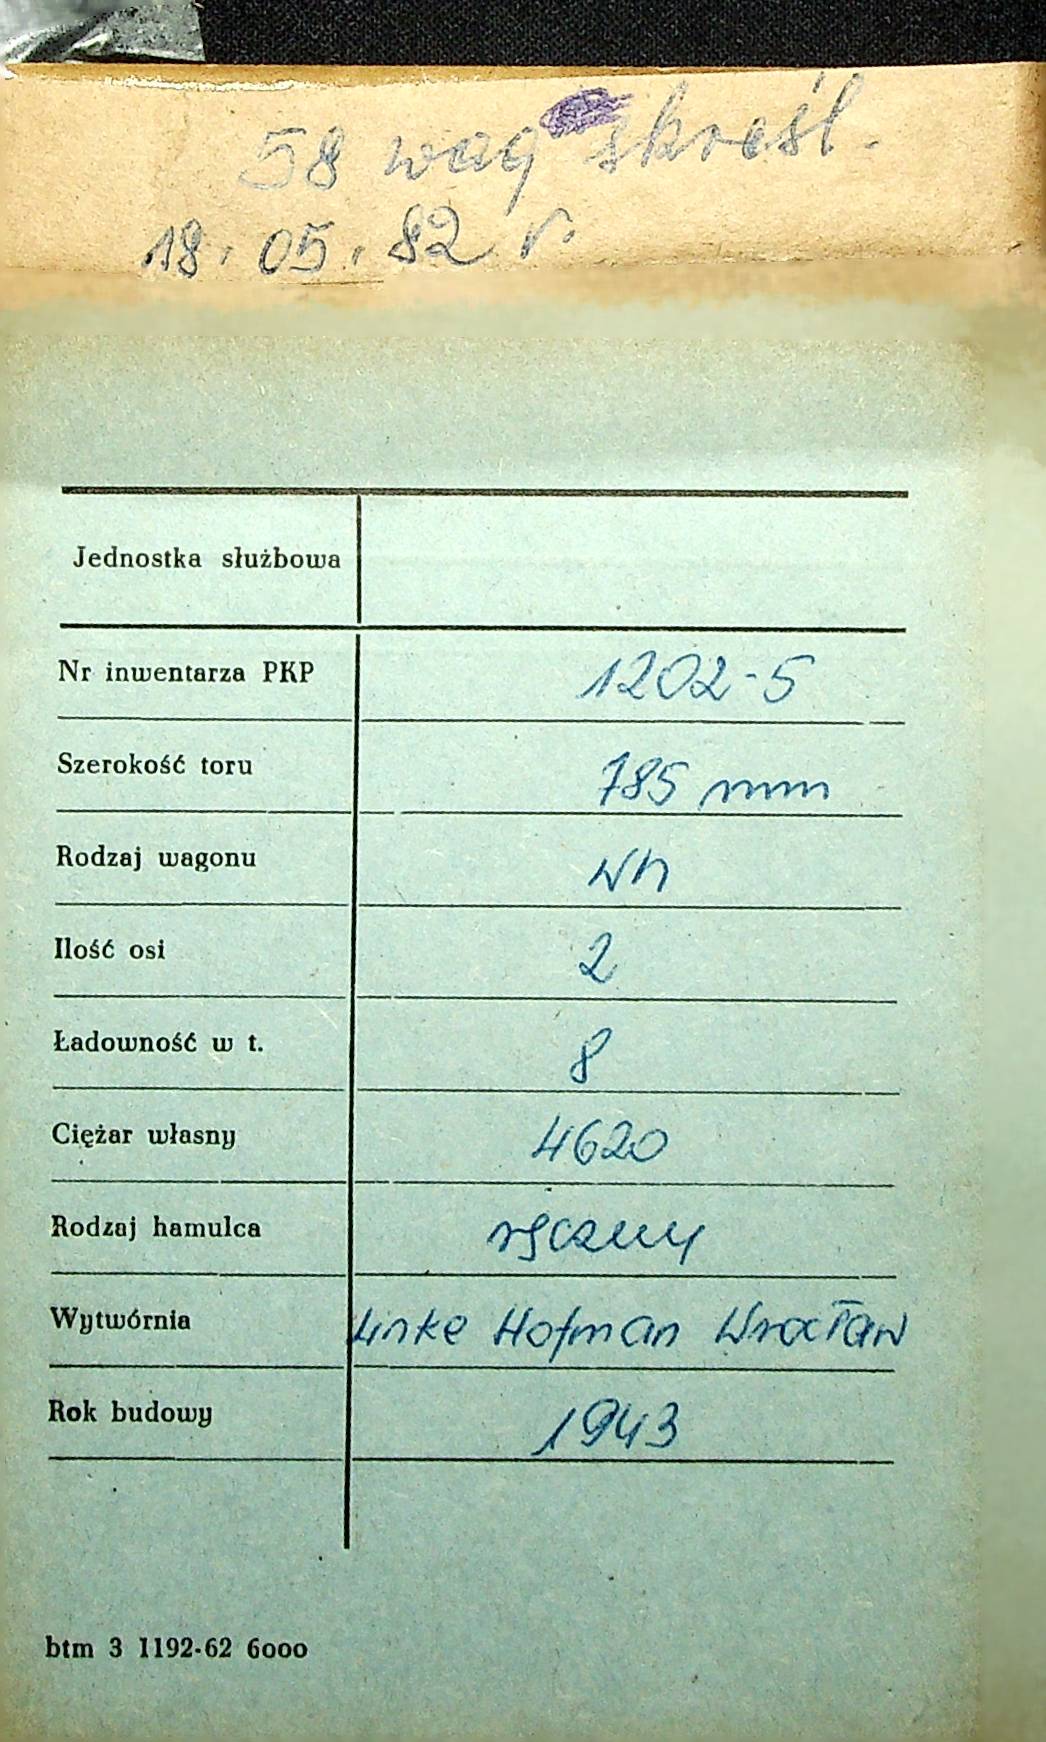 58 wag skreśl.
18.05.82 r.
Jednostka służbowa
Nr inwentarza PKP 1202-5
Szerokość toru 785 mm
Rodzaj wagonu Wh
Ilość osi 2
Ładowność w t. 8
Ciężar własny 4620
Rodzaj hamulca ręczny
Wytwórnia Linke Hofman Wrocław
Rok budowy 1943
btm 3 1192-62 6000